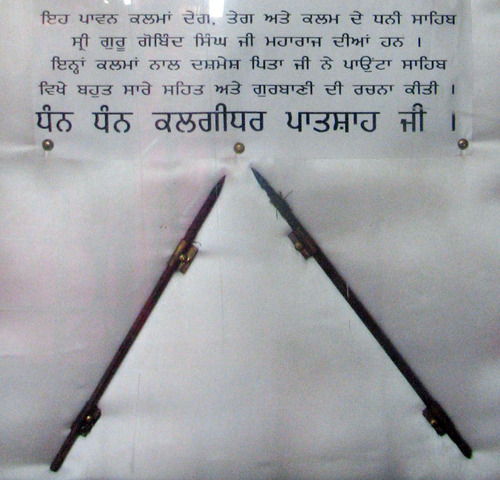 ਇਹ ਪਾਵਨ ਕਲਮਾਂ ਦੇਗ, ਤੇਗ ਅਤੇ ਕਲਮ ਦੇ ਧਨੀ ਸਾਹਿਬ
ਸ੍ਰੀ ਗੁਰੂ ਗੋਬਿੰਦ ਸਿੰਘ ਜੀ ਮਹਾਰਾਜ ਦੀਆਂ ਹਨ ।
ਇਨ੍ਹਾਂ ਕਲਮਾਂ ਨਾਲ ਦਸ਼ਮੇਸ਼ ਪਿਤਾ ਜੀ ਨੇ ਪਾਉਂਟਾ ਸਾਹਿਬ
ਵਿਖੇ ਬਹੁਤ ਸਾਰੇ ਸਹਿਤ ਅਤੇ ਗੁਰਬਾਣੀ ਦੀ ਰਚਨਾ ਕੀਤੀ ।
ਧੰਨ ਧੰਨ ਕਲਗੀਧਰ ਪਾਤਸ਼ਾਹ ਜੀ ।